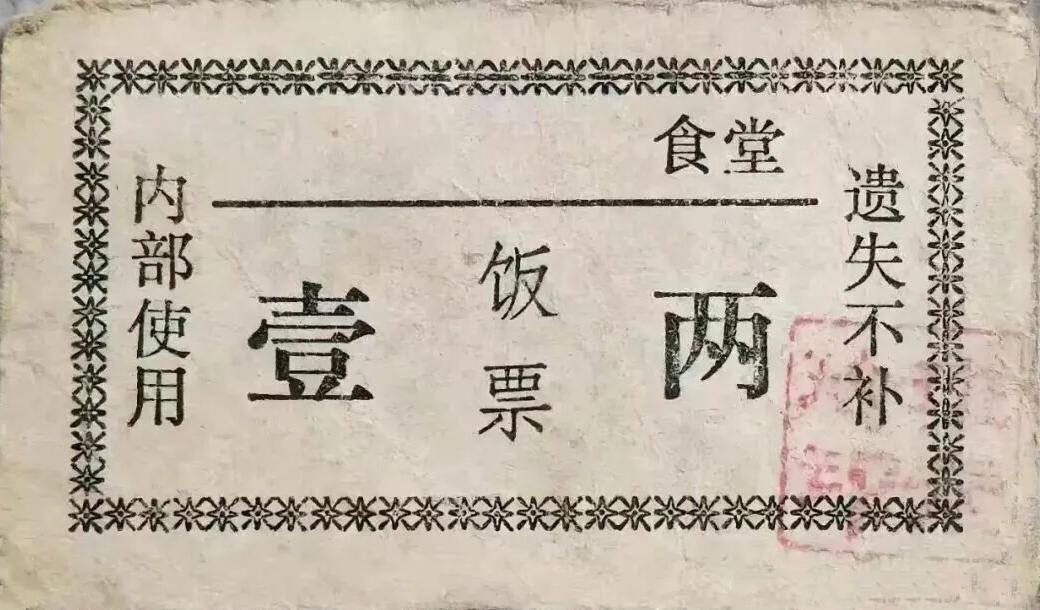 食堂
内部使用
壹两
饭票
遗失不补